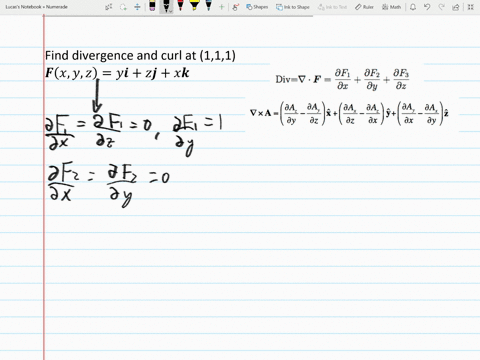 Lucas's Notebook » Numerade
Share
Ink to Shape
Ink to Text
Find divergence and curl at (1,1,1)
F(x, y, z) = yi + zj + xk
Div=∇ · F = ∂F₁/∂x + ∂F₂/∂y + ∂F₃/∂z
∇ × A = (∂A_z/∂y − ∂A_y/∂z) x̂ + (∂A_x/∂z − ∂A_z/∂x) ŷ + (∂A_y/∂x − ∂A_x/∂y) ẑ
∂F₁/∂x = ∂F₁/∂z = 0, ∂F₁/∂y = 1
∂F₂/∂x = ∂F₂/∂y = 0